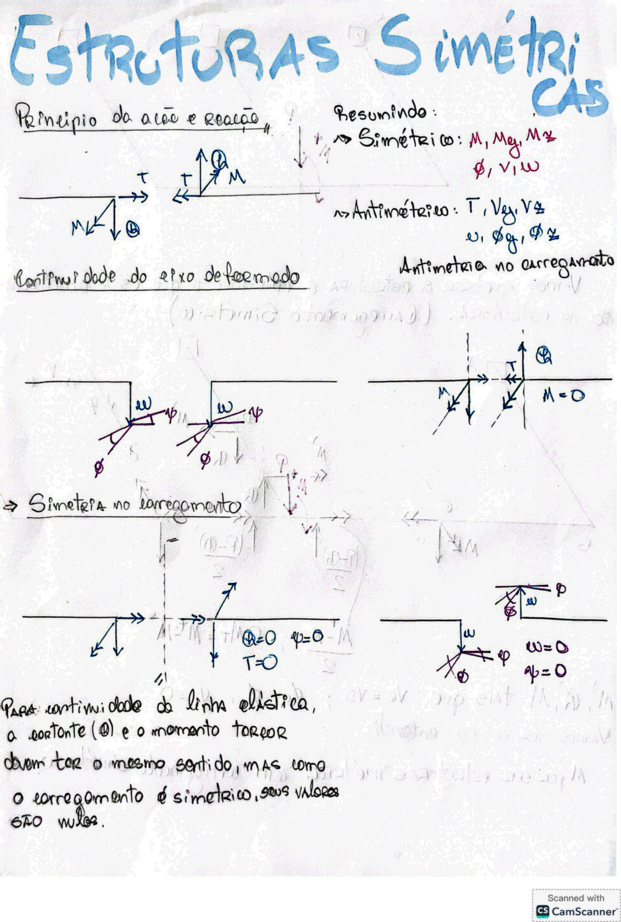 ESTRUTURAS SIMÉTRI
CAS
Princípio da ação e reação
Resumindo:
~> Simétrico: M, My, Mz
Ø, v, w
T T Q M
M Q
~> Antimétrico: T, Vy, Vz
u, Øy, Øz
Antimetria no carregamento
Continuidade do eixo deformado
Q
T
M M=0
w ψ w ψ
Ø Ø
⇒ Simetria no carregamento
Q=0 ψ=0
T=0
Ø w
w
Ø
w=0
ψ=0
Para continuidade da linha elástica,
a cortante (Q) e o momento torçor
devem ter o mesmo sentido, mas como
o carregamento é simetrico, seus valores
são nulos.
Scanned with
CS CamScanner